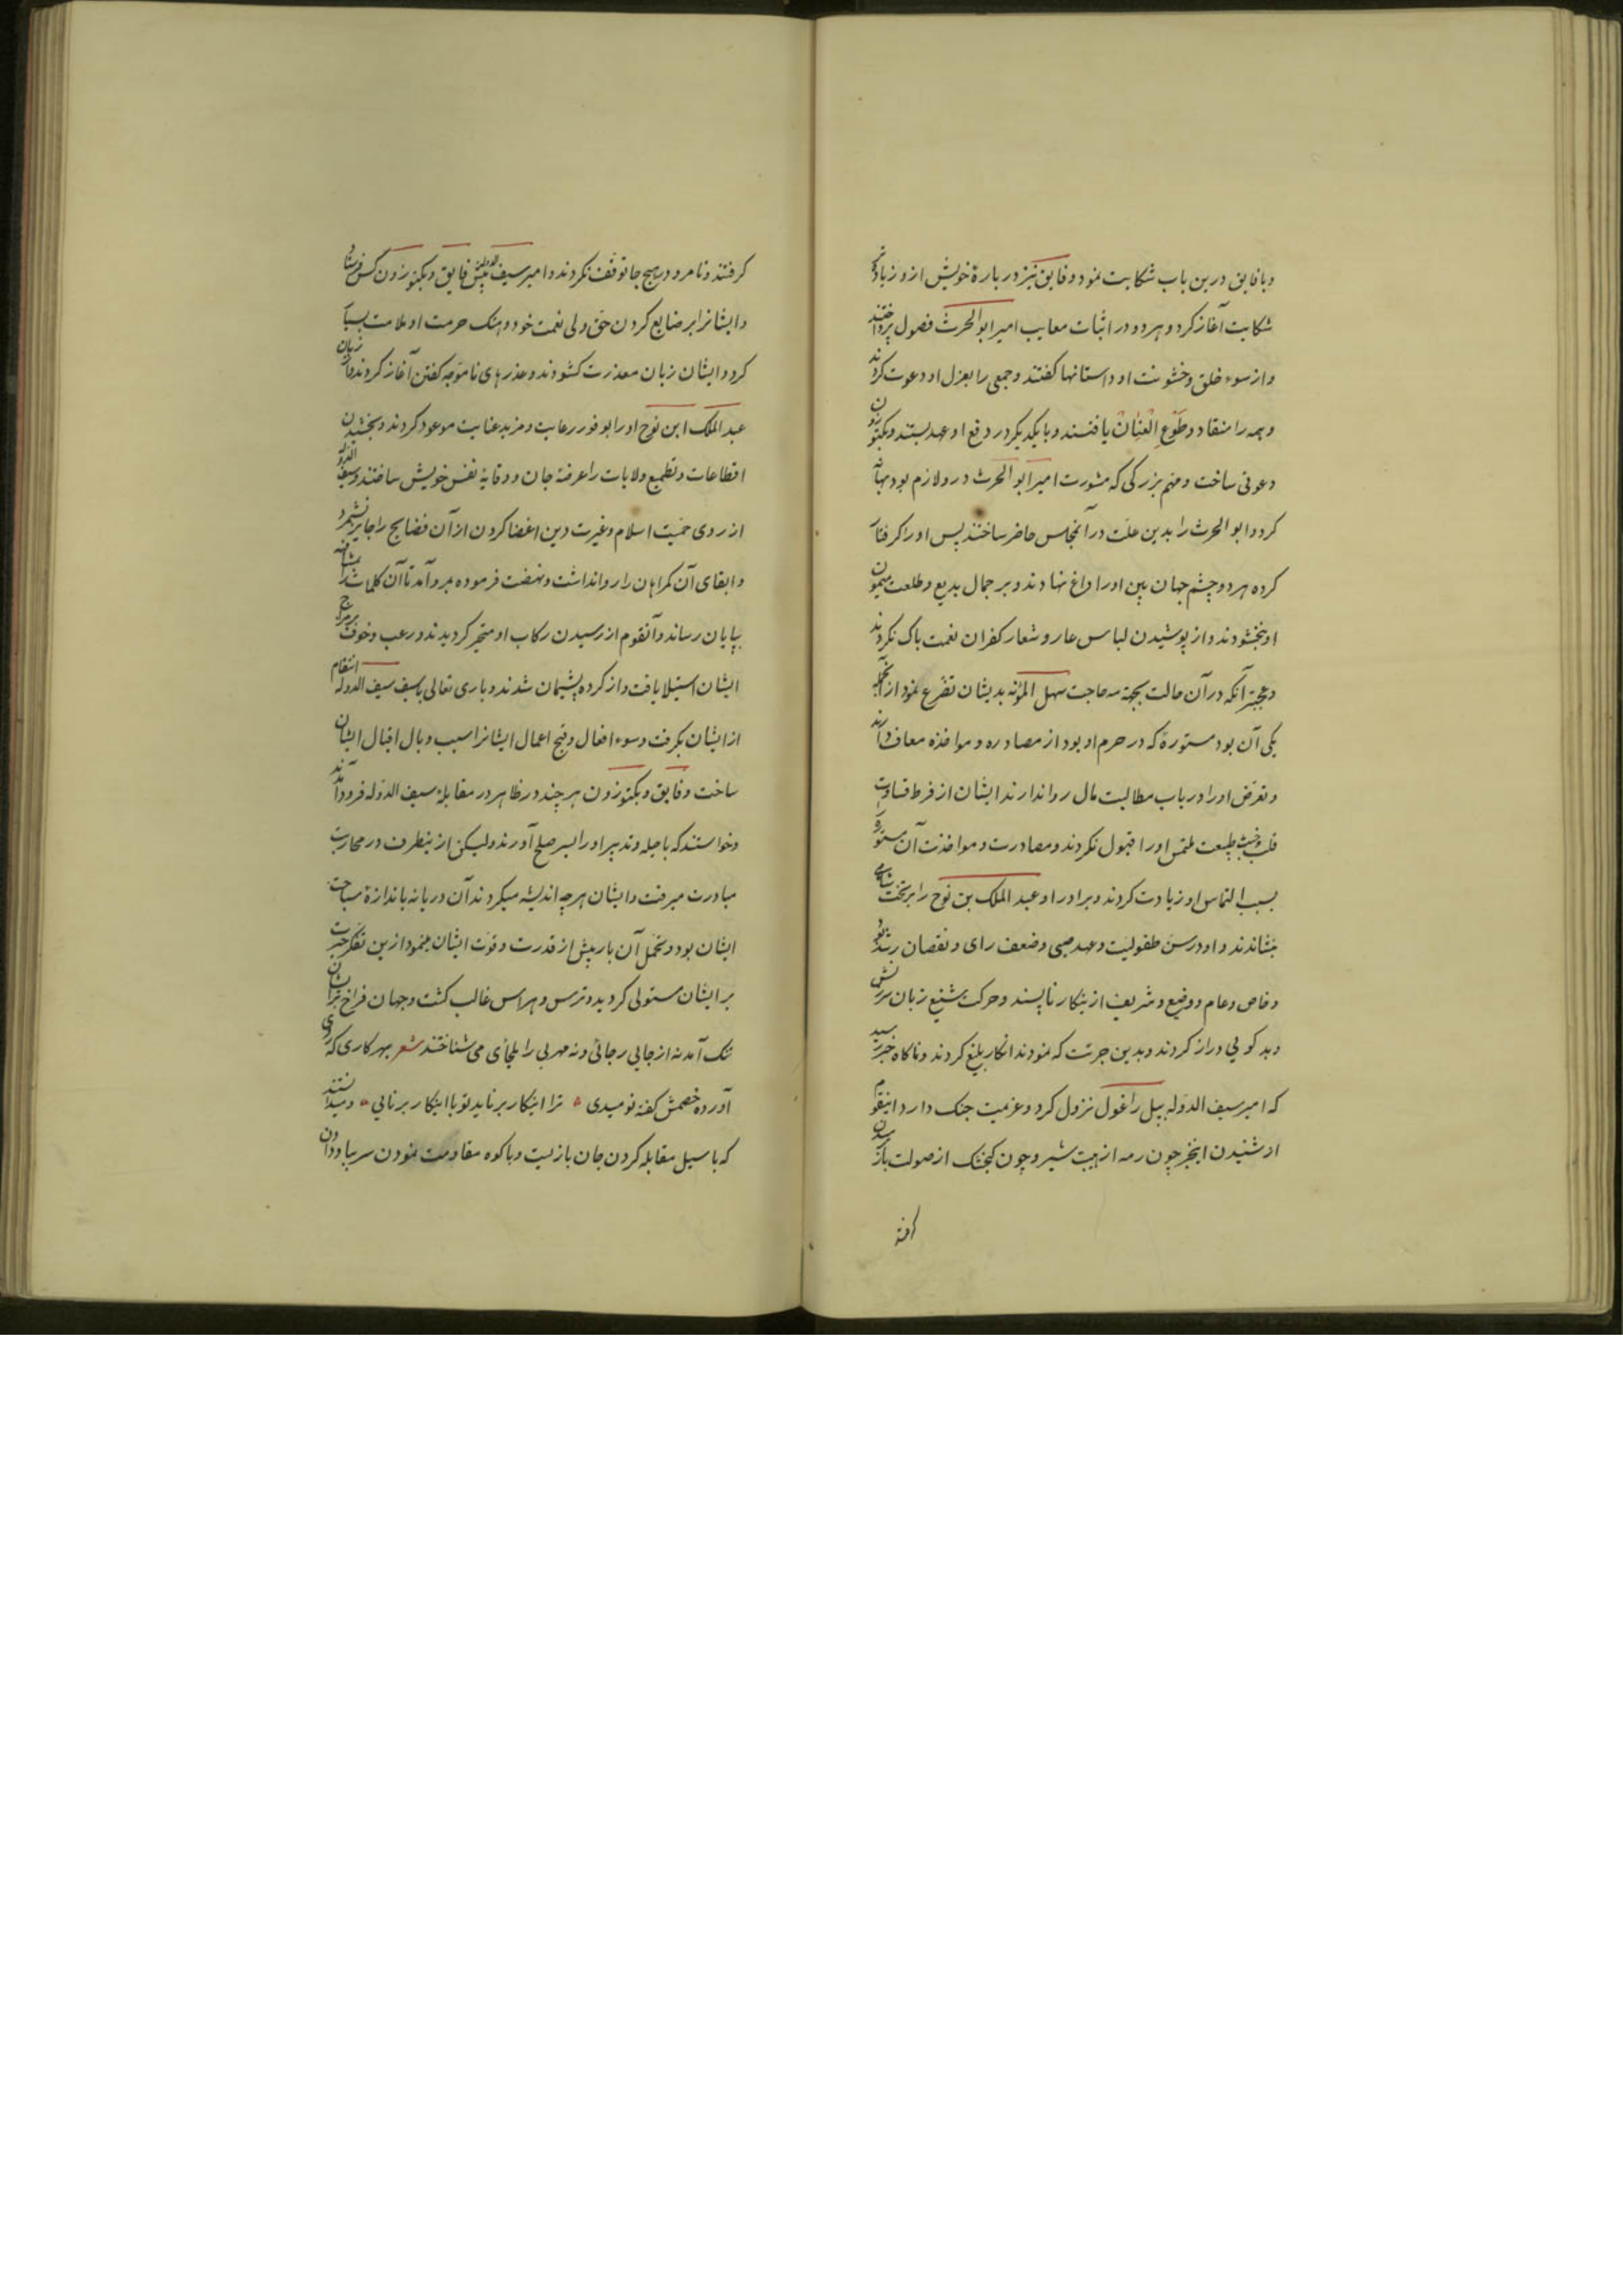 وبا فایق درین باب شکایت نمود و فایق نیز در بارهٔ خویش ازو زیادت
شکایت آغاز کرد و هر دو در اثبات معایب امیر ابو الحرث فصول پرداختند
و از سوء خلق و خشونت او داستانها کفتند و جمعی را بعزل او دعوت کردند
و همه را منقاد و طَوْعِ العِنٰانْ یافتند و با یکدیکر در دفع او عهد بستند و بکتوزون
دعوتی ساخت و مهم بزرکی که مشورت امیر ابو الحرث در و لازم بود بهانه
کرد و ابو الحرث را بدین علت در آنمجلس حاضر ساختند پس او را کرفتار
کرده هر دو چشم جهان بین او را داغ نهادند و بر جمال بدیع و طلعت میمون
او نبخشودند و از پوشیدن لباس عار و شعار کفران نعمت باک نکردند
و عجبتر آنکه در آن حالت بجهة سه حاجت سهل المؤنه بدیشان تضرع نمود از آنجمله
یکی آن بود مستورهٔ که در حرم او بود از مصادره و مواخذه معاف دارند
و تعرض او را در باب مطالبت مال روا ندارند ایشان از فرط قساوت
قلب و خبث طبیعت ملتمس او را قبول نکردند و مصادرت و مواخذت آن مستوره را
بسبب التماس او زیادت کردند و برادر او عبد الملک بن نوح را بر تخت شاهی
بنشاندند و او در سن طفولیت و عهد صبی و ضعف رای و نقصان رشد بود
و خاص و عام و وضیع و شریف ازینکار ناپسند و حرکت شنیع زبان سرزنش
و بد کویی دراز کردند و بدین جرئت که نمودند انکار بلیغ کردند و ناکاه خبر رسید
که امیر سیف الدوله بپل راغول نزول کرد و عزیمت جنک دارد اینقوم
از شنیدن اینخبر چون رمه از هیبت شیر و چون کنجشک از صولت باز
کرفتند و تا مرو در هیچ جا توقف نکردند و امیر سیف الدوله پیش فایق و بکتوزون کس فرستاد
و ایشانرا بر ضایع کردن حق ولی نعمت خود و هتک حرمت او ملامت بسیار
کرد و ایشان زبان معذرت کشودند و عذرهای ناموجه کفتن آغاز کردند و از زبان
عبد الملک ابن نوح او را بوفور رعایت و مزید عنایت موعود کردند و بخشیدن
اقطاعات و تطمیع ولایات را عرضهٔ جان و وقایهٔ نفس خویش ساختند و سیف الدوله
از روی حمیت اسلام و غیرت دین اغضا کردن از آن فضایح را جایز نشمرد
و ابقای آن کمراهان را روا نداشت و نهضت فرموده بمرو آمد تا آن کلمات را مشافهه
بپایان رساند و آنقوم از رسیدن رکاب او متحیر کردیدند و رعب و خوف بر مزاج
ایشان استیلا یافت و از کرده پشیمان شدند و باری تعالی باسیف سیف الدوله انتقام
از ایشان بکرفت و سوء افعال و قبح اعمال ایشانرا سبب وبال اقبال ایشان
ساخت و فایق و بکتوزون هر چند در ظاهر در مقابلهٔ سیف الدوله فرود آمدند
و خواستند که با حیله و تدبیر او را بسر صلح آورند ولیکن از ینطرف در محاربت
مبادرت میرفت و ایشان هر چه اندیشه میکردند آن دریا نه باندازهٔ سباحت
ایشان بود و تحمل آن بار بیش از قدرت و قوت ایشان مینمود ازین تفکر حیرت
بر ایشان مستولی کردید و ترس و هراس غالب کشت و جهان فراخ بر ایشان
تنک آمد نه از جایی رجائی و نه مهربی را ملجأی می شناختند شعر بهر کاری که روی
آورده خصمش کفته نومیدی ۰ ترا اینکار برناید تو با اینکار برنایی ۰ و میدانستند
که با سیل مقابله کردن جان بازیست و با کوه مقاومت نمودن سر بباد دادن